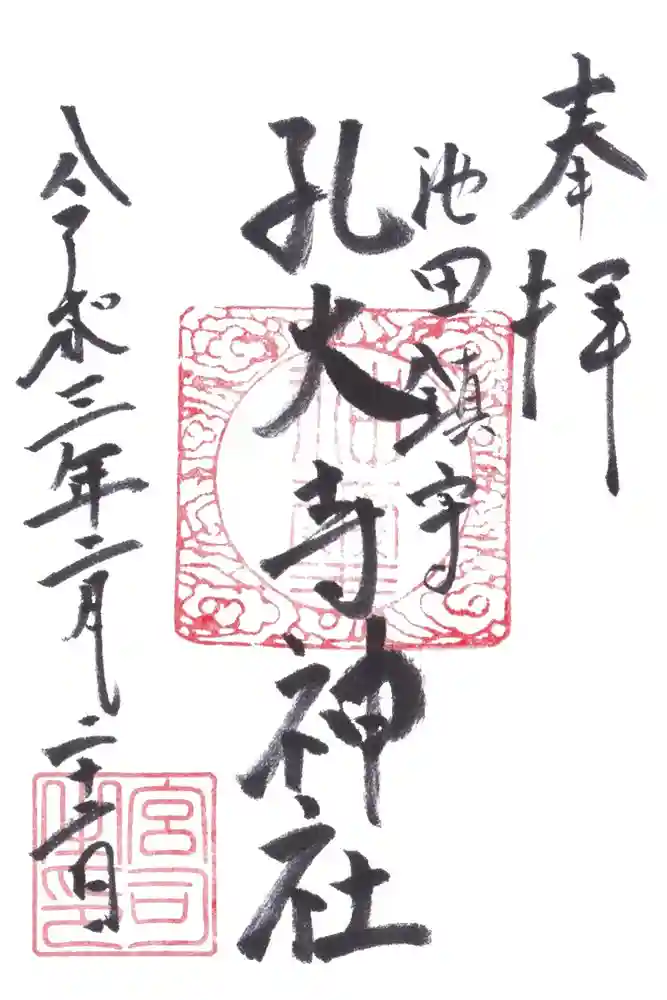 奉拝
池田鎮守
孔大寺神社
令和三年二月二十二日
宮司之印